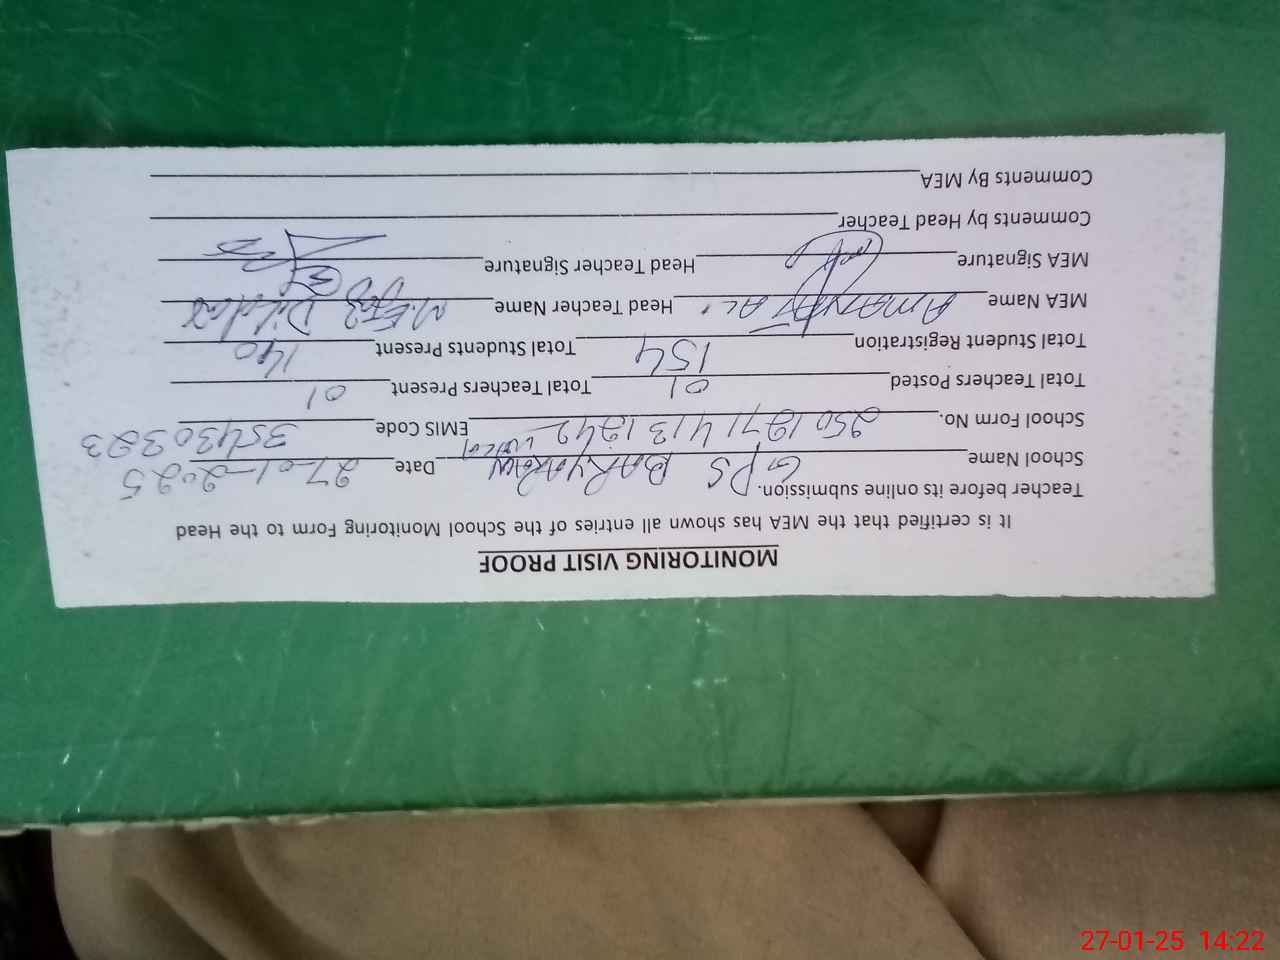 MONITORING VISIT PROOF
It is certified that the MEA has shown all entries of the School Monitoring Form to the Head
Teacher before its online submission.
School Name GPS Date 27-01-2025
School Form No. EMIS Code 35430323
Total Teachers Posted 01 Total Teachers Present 01
Total Student Registration 154 Total Students Present 140
MEA Name AMANAT ALI Head Teacher Name Dildar
MEA Signature Head Teacher Signature
Comments by Head Teacher
Comments By MEA
27-01-25 14:22